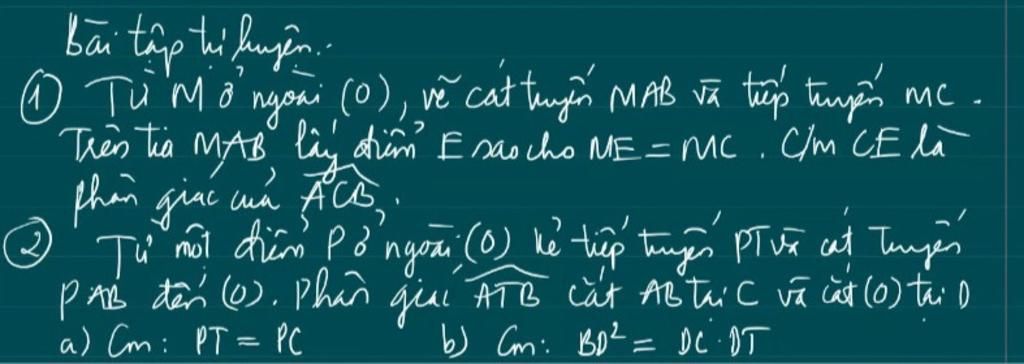 Bài tập tự luyện..
① Từ M ở ngoài (O), vẽ cát tuyến MAB và tiếp tuyến MC.
Trên tia MAB lấy điểm E sao cho ME = MC. C/m CE là
phân giác của ACB.
② Từ một điểm P ở ngoài (O) kẻ tiếp tuyến PT và cát tuyến
PAB đến (O). Phân giác ATB cắt AB tại C và cắt (O) tại D
a) Cm: PT = PC b) Cm: BD² = DC.DT